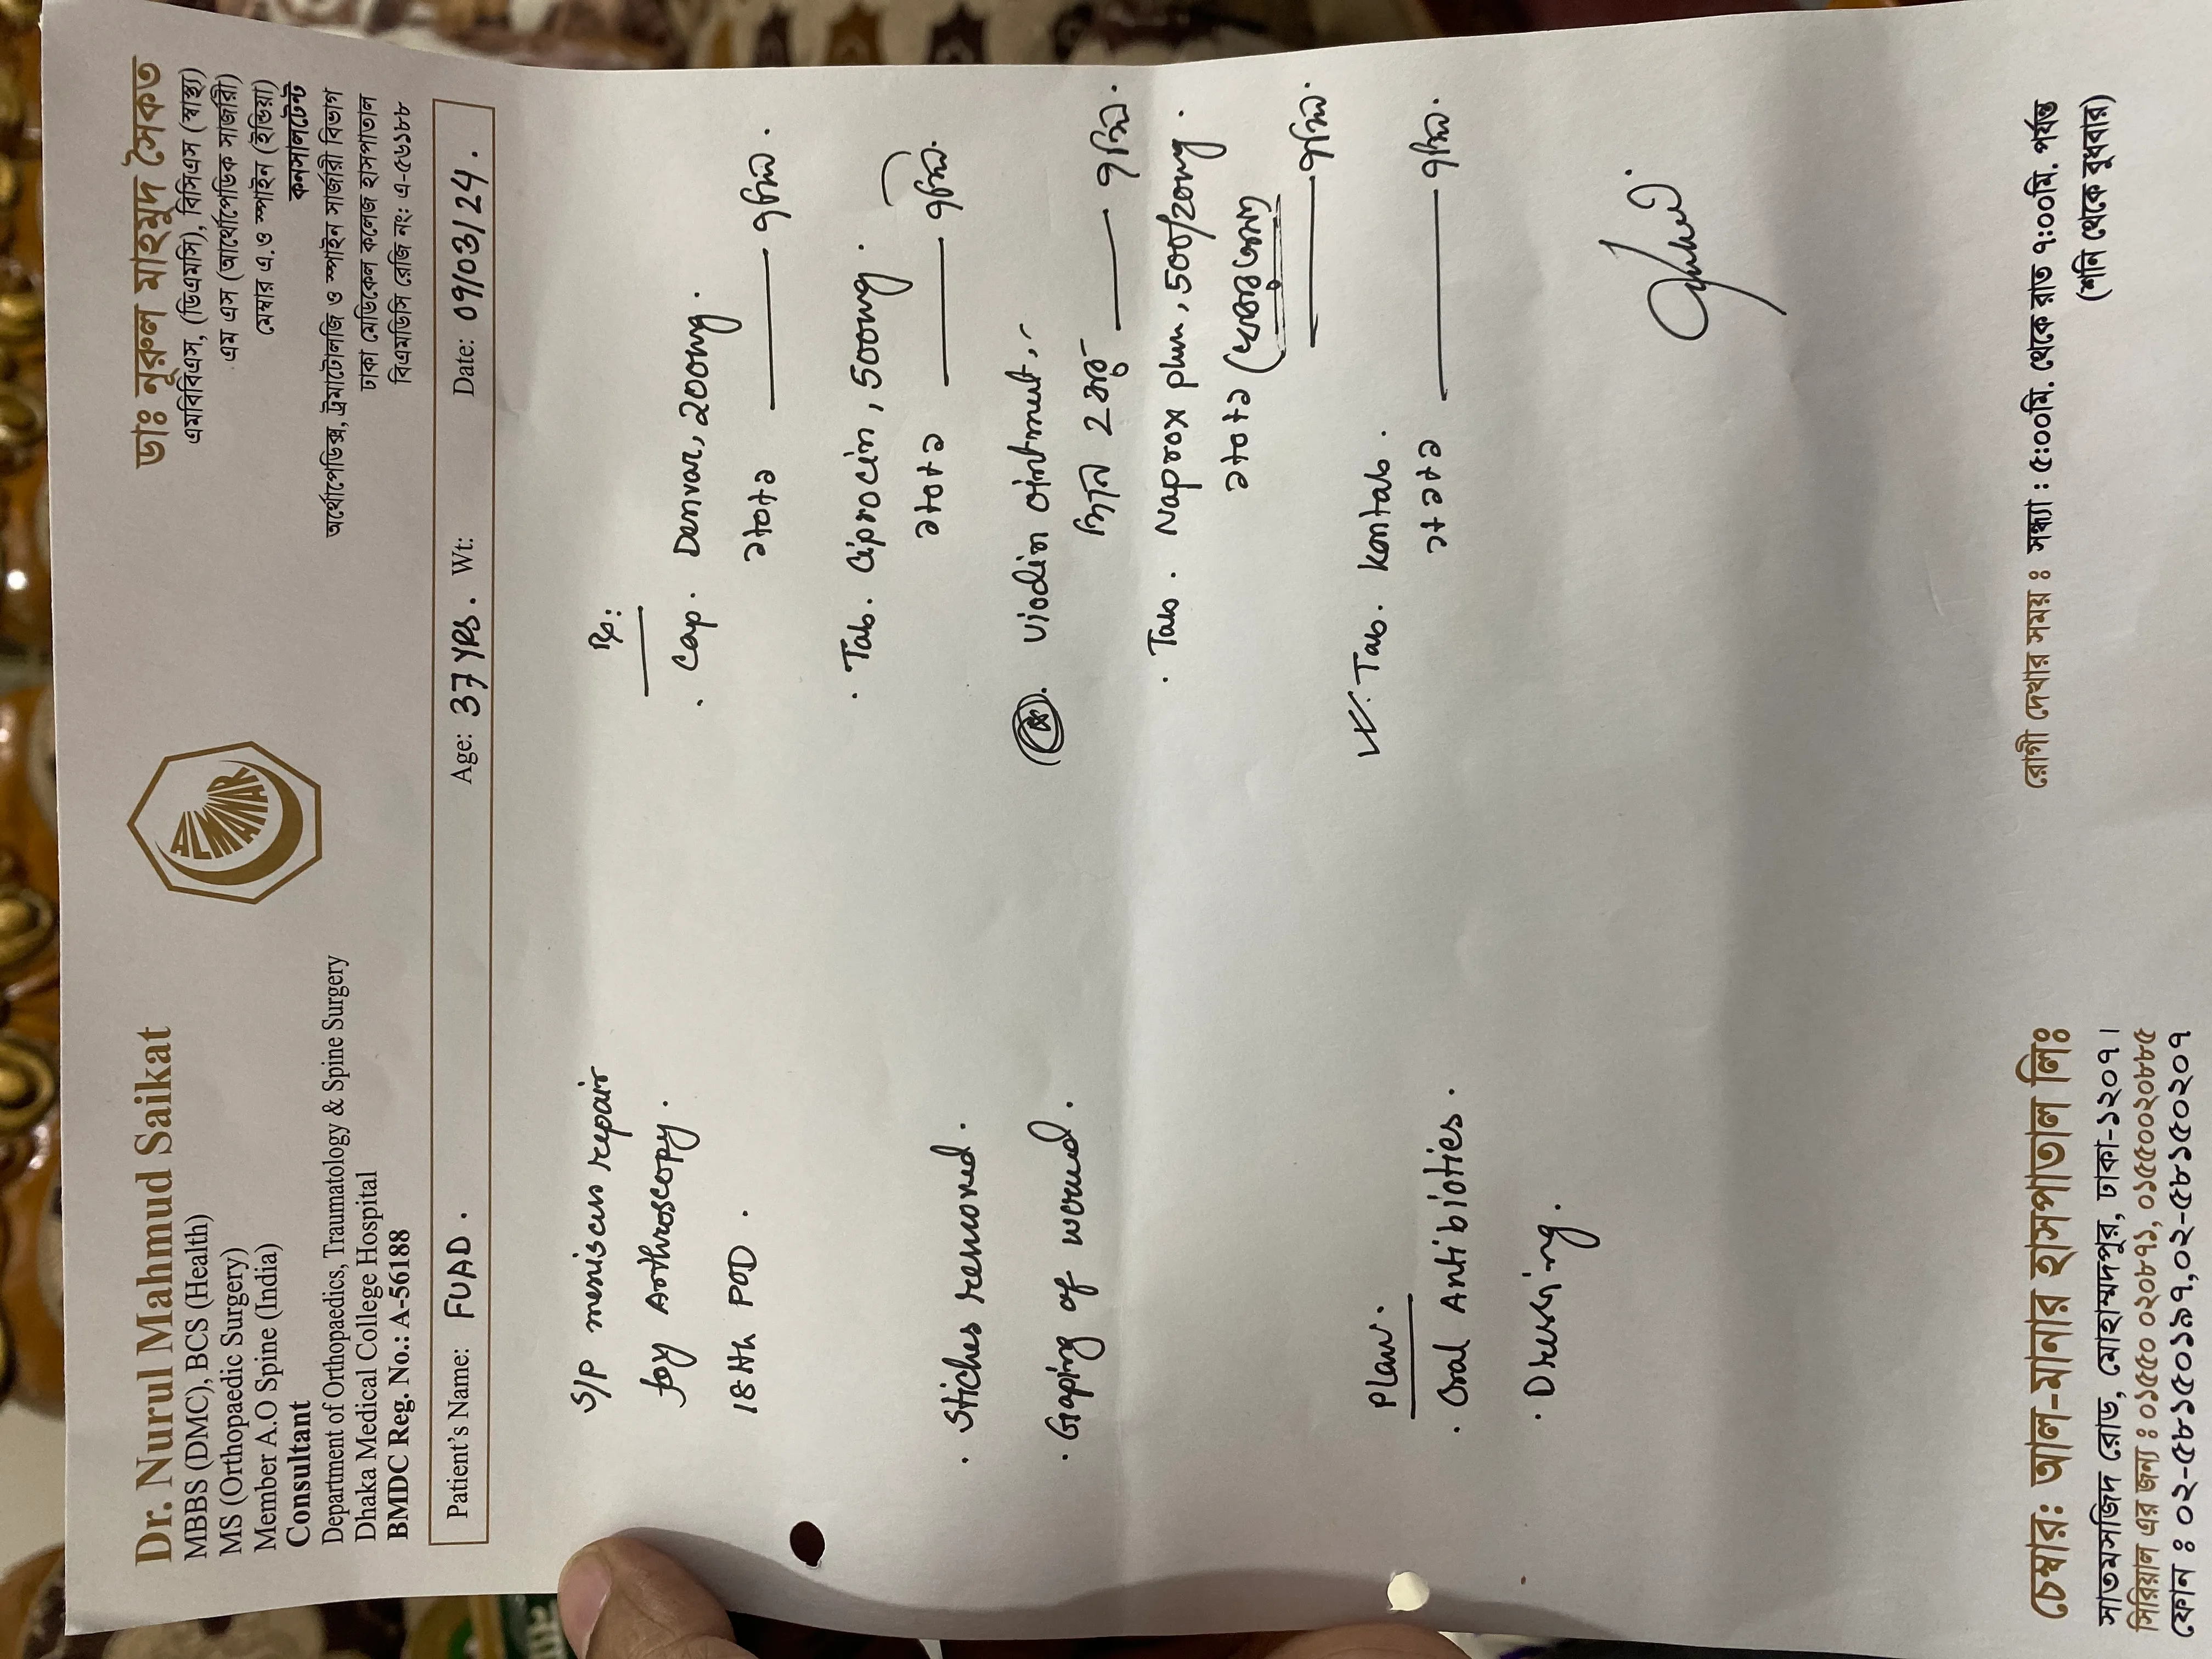 Dr. Nurul Mahmud Saikat
MBBS (DMC), BCS (Health)
MS (Orthopaedic Surgery)
Member A.O Spine (India)
Consultant
Department of Orthopaedics, Traumatology & Spine Surgery
Dhaka Medical College Hospital
BMDC Reg. No.: A-56188
ALMANAR
ডাঃ নূরুল মাহমুদ সৈকত
এমবিবিএস, (ডিএমসি), বিসিএস (স্বাস্থ্য)
এম এস (অর্থোপেডিক সার্জারী)
মেম্বার এ.ও স্পাইন (ইন্ডিয়া)
কনসালটেন্ট
অর্থোপেডিক্স, ট্রমাটোলজি ও স্পাইন সার্জারী বিভাগ
ঢাকা মেডিকেল কলেজ হাসপাতাল
বিএমডিসি রেজি নং: এ-৫৬১৮৮
Patient's Name: FUAD. Age: 37 YRS. Wt: Date: 09/03/24.
S/P meniscus repair
by Arthroscopy.
18th POD.
· Stiches removed.
· Gaping of wound.
Plan:
· Oral Antibiotics.
· Dressing.
Rx:
· Cap. Denvar, 200mg.
১+০+১ — ৭দিন.
· Tab. Ciprocin, 500mg.
১+০+১ — ৭দিন.
Viodin ointment,
দিনে 2 বার — ৭দিন.
· Tab. Naprox plus, 500/20mg.
১+০+১ (
— ৭দিন.
Tab. Kontab.
১+১+১ — ৭দিন.
চেম্বার: আল-মানার হাসপাতাল লিঃ
সাতমসজিদ রোড, মোহাম্মদপুর, ঢাকা-১২০৭।
সিরিয়াল এর জন্য : ০১৫৫০ ০২০৮৭১, ০১৫৫০০২০৮৮৫
ফোন : ০২-৫৮১৫০১৯৭, ০২-৫৮১৫০২০৭
রোগী দেখার সময় : সন্ধ্যা : ৫:০০মি. থেকে রাত ৭:০০মি. পর্যন্ত
(শনি থেকে বুধবার)